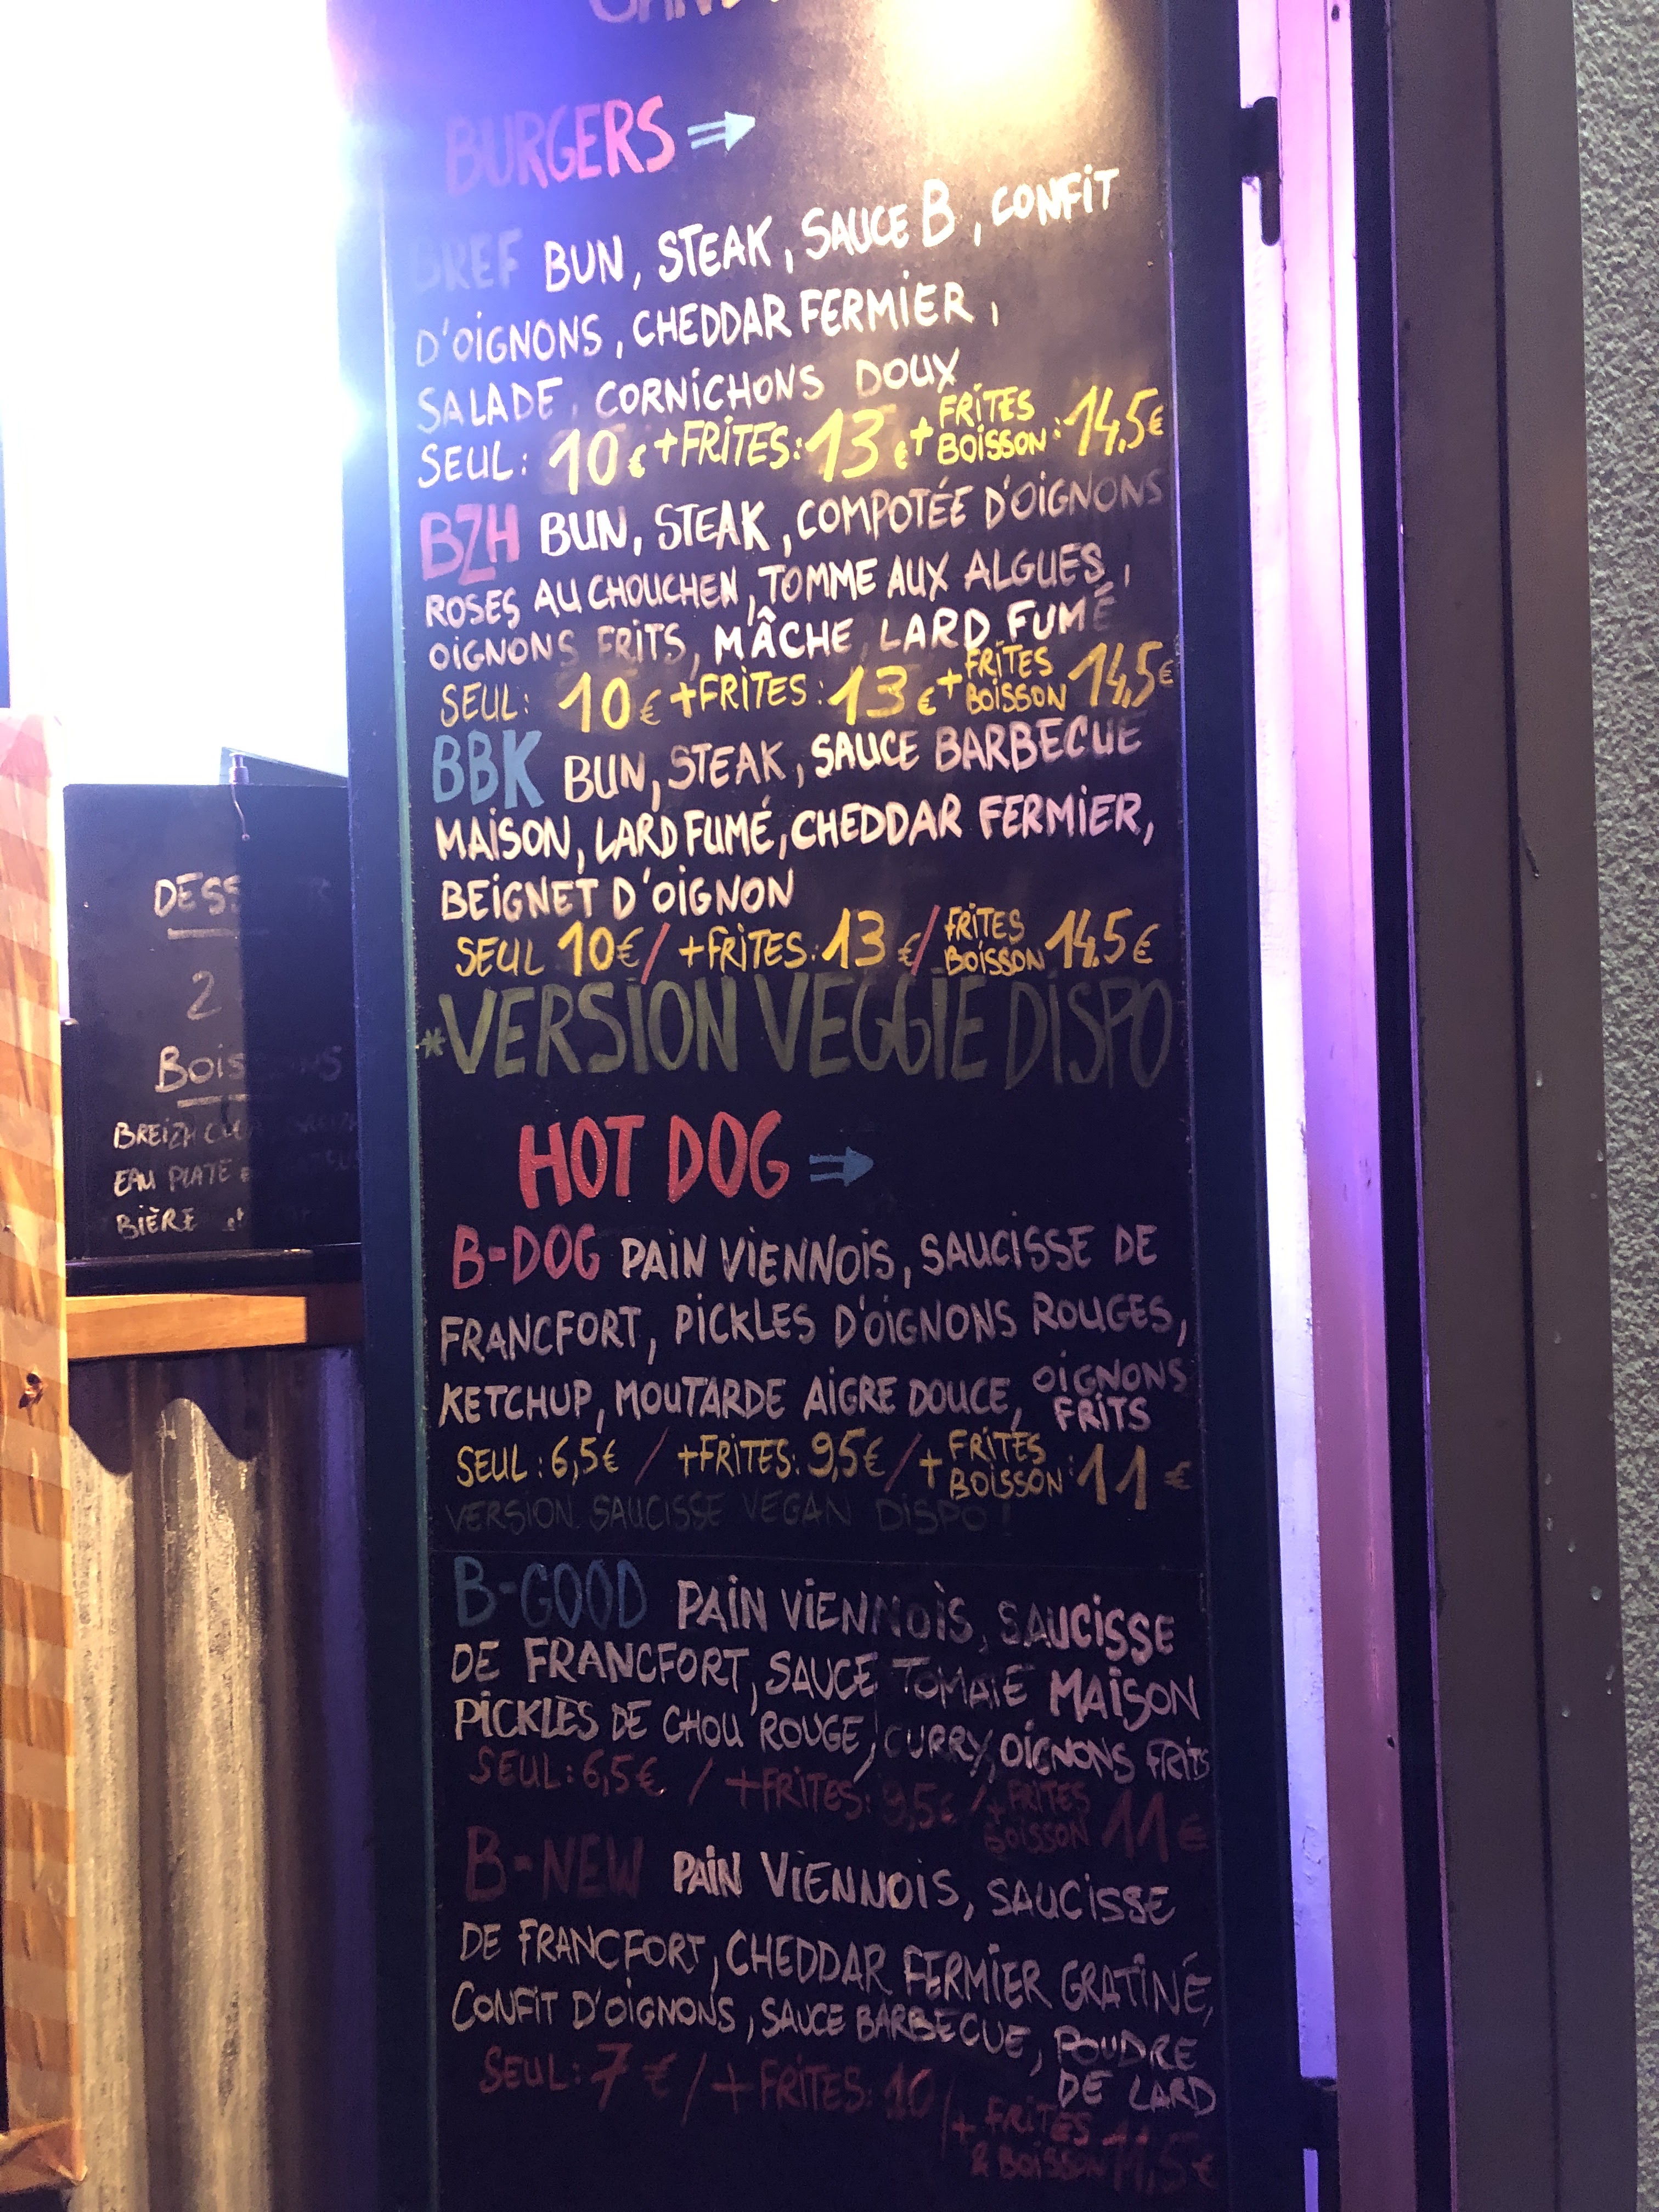 BURGERS
BREF BUN, STEAK, SAUCE B, CONFIT
D'OIGNONS, CHEDDAR FERMIER,
SALADE, CORNICHONS DOUX
SEUL: 10€ +FRITES: 13€ + FRITES BOISSON: 14,5€
BZH BUN, STEAK, COMPOTÉE D'OIGNONS
ROSES AU CHOUCHEN, TOMME AUX ALGUES,
OIGNONS FRITS, MÂCHE, LARD FUMÉ
SEUL: 10€ +FRITES: 13€ + FRITES BOISSON 14,5€
BBK BUN, STEAK, SAUCE BARBECUE
MAISON, LARD FUMÉ, CHEDDAR FERMIER,
BEIGNET D'OIGNON
SEUL 10€/ +FRITES: 13€/ FRITES BOISSON 14,5€
*VERSION VEGGIE DISPO
HOT DOG
B-DOG PAIN VIENNOIS, SAUCISSE DE
FRANCFORT, PICKLES D'OIGNONS ROUGES,
KETCHUP, MOUTARDE AIGRE DOUCE, OIGNONS FRITS
SEUL: 6,5€ / +FRITES: 9,5€ / + FRITES BOISSON: 11€
VERSION SAUCISSE VEGAN DISPO!
B-GOOD PAIN VIENNOIS, SAUCISSE
DE FRANCFORT, SAUCE TOMATE MAISON
PICKLES DE CHOU ROUGE, CURRY, OIGNONS FRITS
SEUL: 6,5€ / +FRITES: 9,5€ / + FRITES BOISSON 11€
B-NEW PAIN VIENNOIS, SAUCISSE
DE FRANCFORT, CHEDDAR FERMIER GRATINÉ,
CONFIT D'OIGNONS, SAUCE BARBECUE, POUDRE DE LARD
SEUL: 7€ / + FRITES: 10 / + FRITES & BOISSON 11,5€
2
BOISSONS
BREIZH
EAU PLATE
BIÈRE